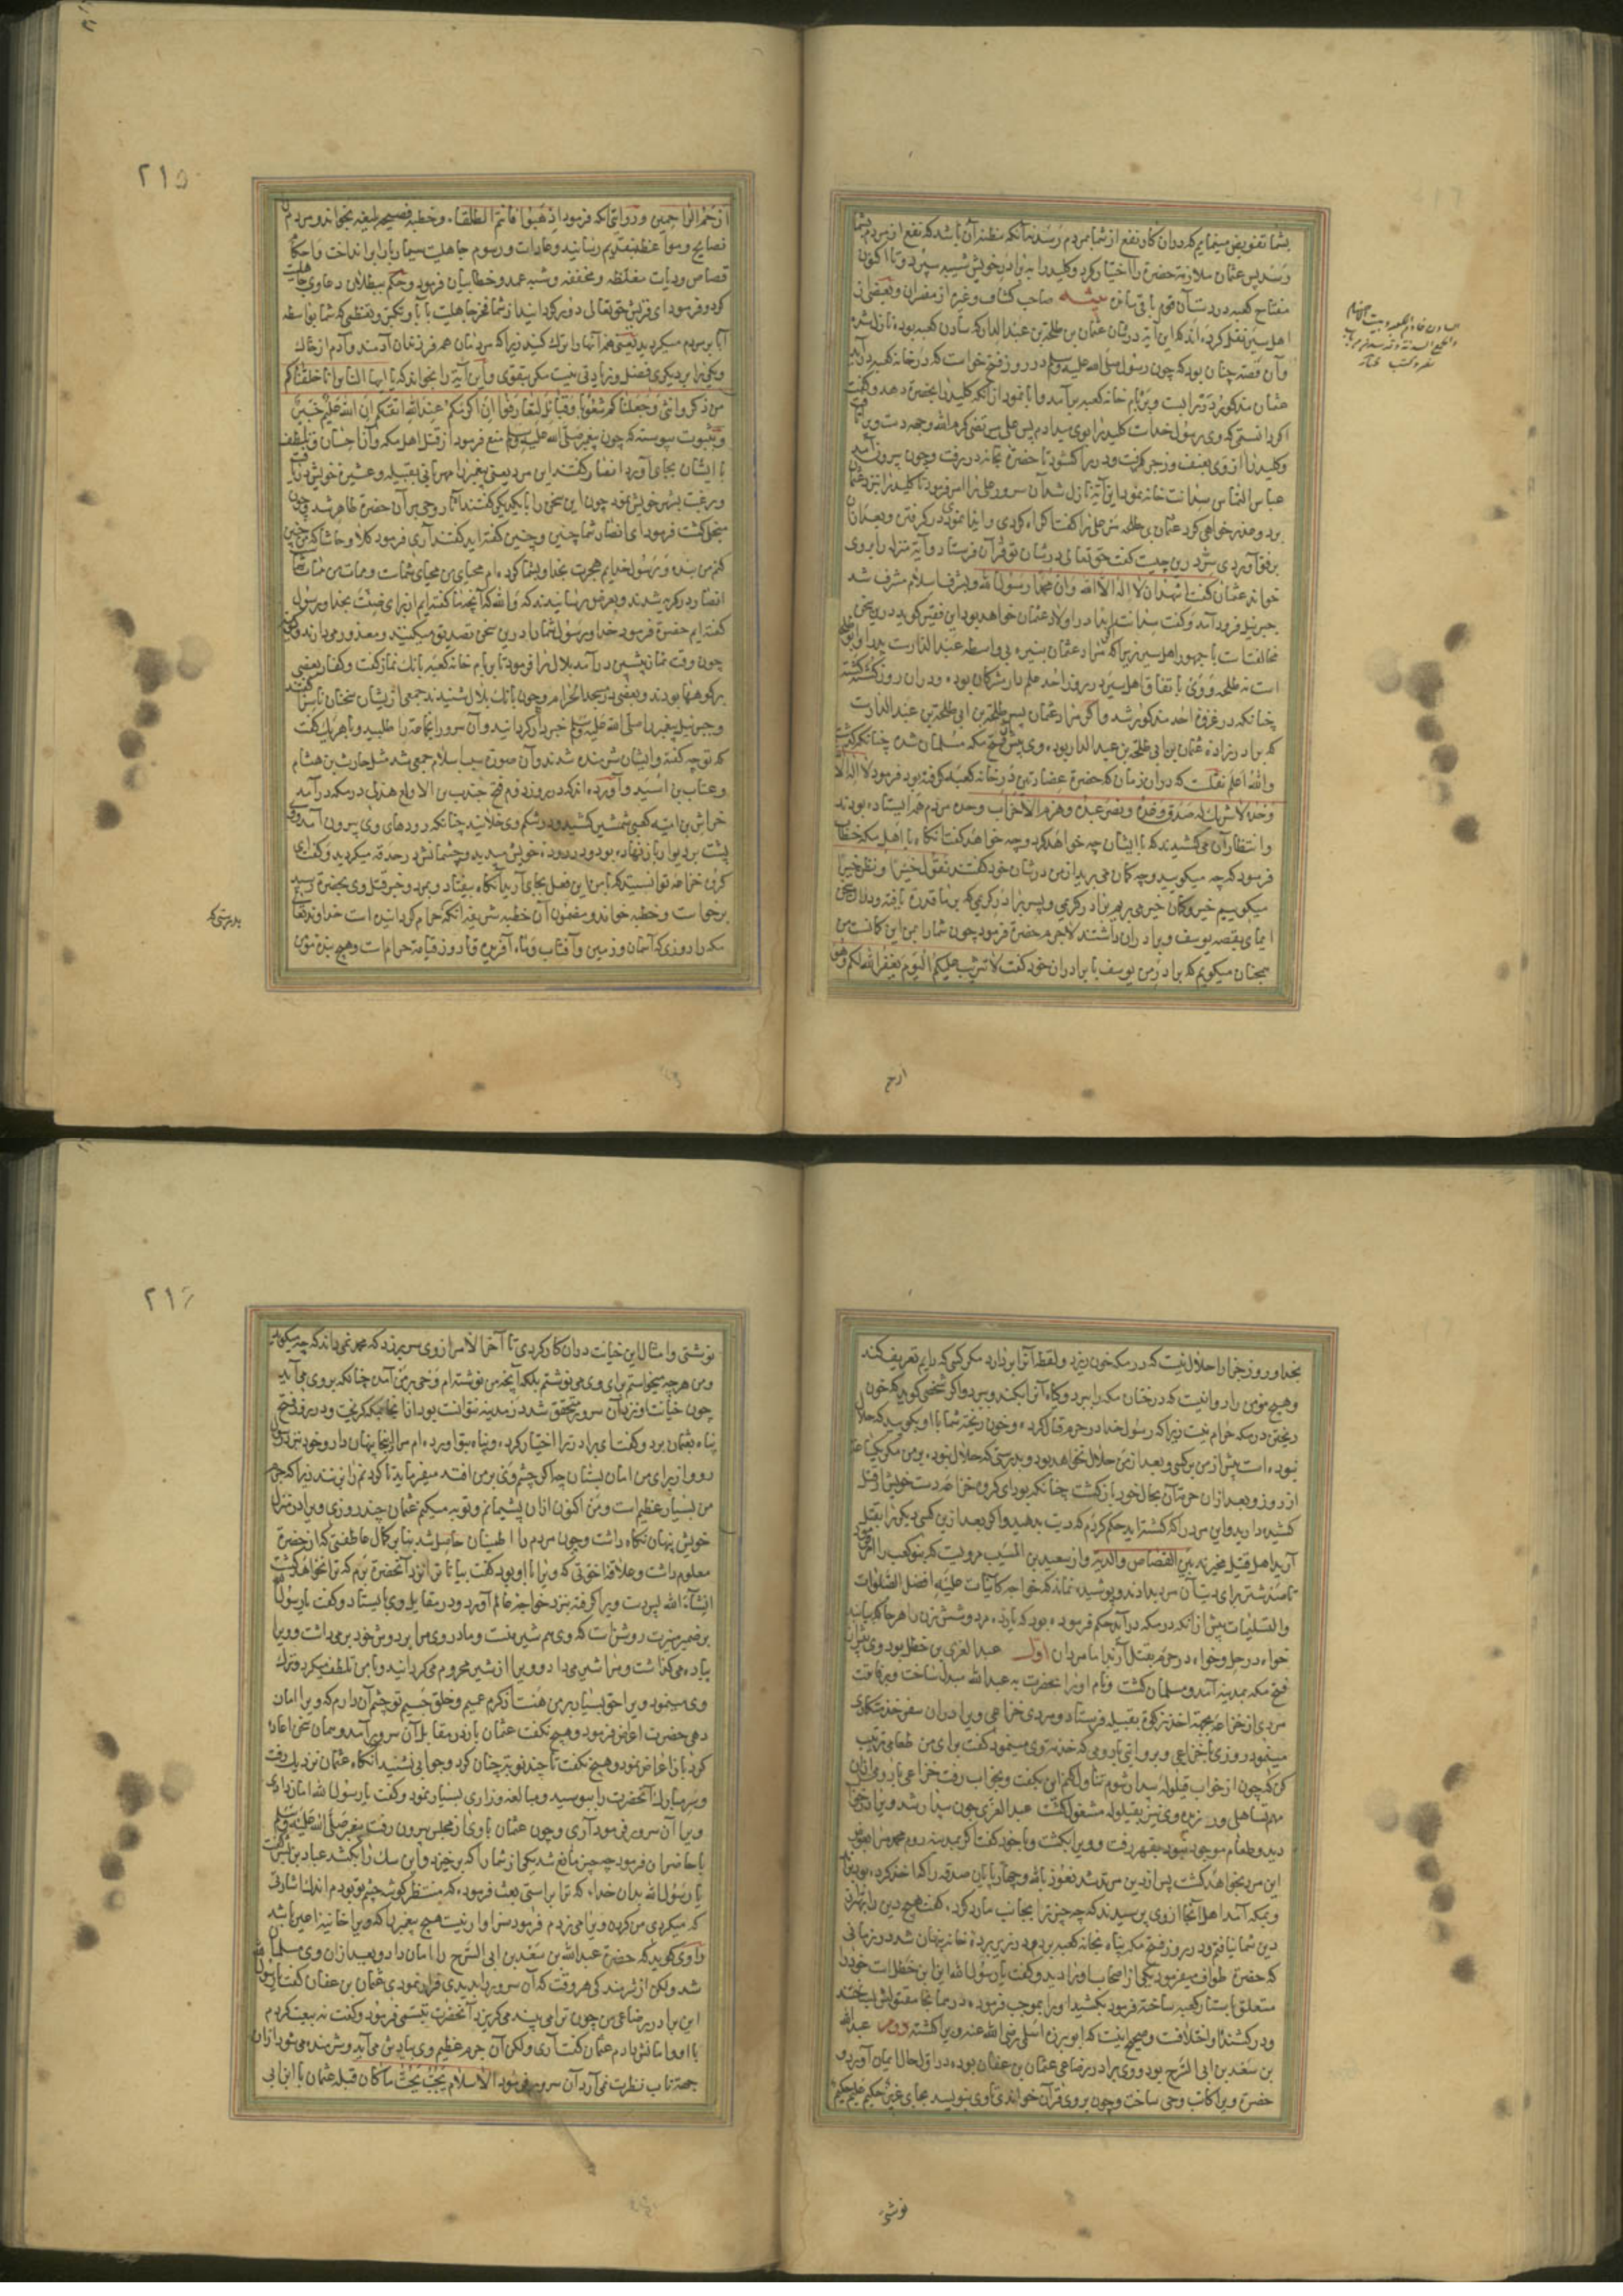 بشما تفویض مینمایم که در وان کار نفع از شما بمردم رسد نه آنکه مظنه آن باشد که نفع از مردم بشما
رسد پس عثمان ملازمت حضرت را اختیار کرد و کلید را به برادر خویش شیبه سپرد و تا اکنون
مفتاح کعبه در دست آن قوم باقی ماند صاحب کشاف و غیر از مفسران و بعضی از
اهل سیر نقل کرده اند که این آیة در شان عثمان بن طلحة بن عبد الدار که سادن کعبه بوده نازل شده
و آن قصه چنان بود که چون رسول صلی الله علیه وسلم در روز فتح خواست که در خانه کعبه در آید
عثمان مذکور در را ببست و بر بام خانه کعبه بر آمد و ابا نمود از آنکه کلید را بحضرت دهد و گفت
اگر دانستمی که وی رسول خداست کلید را بوی میدادم پس علی مرتضی کرم الله وجهه دست ویرا
و کلید را از وی بعنف و زجر گرفت و در را گشود تا حضرت بخانه در رفت و چون بیرون آمد
عباس التماس سدانت خانه نمود این آیة نازل شد آن سرور علی را امر فرمود تا کلید را نزد عثمان
برد و عذر خواهی کرد عثمان بن طلحه مر علی را گفت اکراه کردی و ایذا نمودی در گرفتن و بعد از آن
برفق آوردی سر درین چیست گفت حق تعالی در شان تو قرآن فرستاد و آیة منزله را بر وی
خواند عثمان گفت اشهد ان لا اله الا الله وان محمدا رسول الله و بشرف اسلام مشرف شد
جبرئیل فرود آمد و گفت سدانت ابدا در اولاد عثمان خواهد بود این فقیر گوید درین سخن
مخالفتست با جمهور اهل سیر زیرا که
است نه طلحه و وی باتفاق اهل سیر در روز احد علم دار مشرکان بود و در آن روز کشته گشته
چنانکه در غزوه احد مذکور شد و اگر مراد عثمان پسر طلحة بن ابی طلحة بن عبد الدارست
که برادر زاده عثمان بن ابی طلحة بن عبد الدار بود وی پیش از فتح مکه مسلمان شده چنانکه گذشت
والله اعلم نقلست که در آن زمان که حضرت عضادتین در خانه کعبه گرفته بود فرمود لا اله الا
وحده لا شریک له صدق وعده ونصر عبده وهزم الاحزاب وحده مردم هم ایستاده بودند
و انتظار آن می کشیدند که با ایشان چه خواهد کرد و چه خواهد گفت آنگاه با اهل مکه خطاب
فرمود که چه میگویید و چه گمان می برید از من در شان خود گفتند نقول خیرا و نظن خیرا
میگوییم خیر و گمان خیر می بریم برادر کریمی و پسر برادر کریمی که بر ما قدرت یافته و درین سخن
ایمای بقصه یوسف و برادران داشتند لاجرم حضرت فرمود چون شما را بمن این گمانست من
همچنان میگویم که برادر من یوسف با برادران خود گفت لا تثریب علیکم الیوم یغفر الله لکم وهو
ارحم
٢١٥
ارحم الراحمین و در روایتی آنکه فرمود اذهبوا فانتم الطلقاء و خطبه فصیحه بلیغه بخواند و مردم را
نصایح و مواعظ بتقدیم رسانید و عادات و رسوم جاهلیت سیما ربا را بر انداخت و احکام
قصاص و دیات مغلظه و مخففه و شبه عمد و خطا بیان فرمود و حکم ببطلان دعاوی جاهلیت
کرد و فرمود ای قریش حق تعالی دور گردانید از شما فخر جاهلیت با آبا و تکبر و تعظمی که شما بواسطه
آبا بر مردم میکردید یعنی همه آنها را ترک کنید زیرا که مردمان همه فرزندان آدمند و آدم از خاک
و یکی را بر دیگری فضل و زیادتی نیست مگر بتقوی و این آیة را بخواند که یا ایها الناس انا خلقناکم
من ذکر وانثی وجعلناکم شعوبا وقبائل لتعارفوا ان اکرمکم عند الله اتقیکم ان الله علیم خبیر
و بثبوت پیوسته که چون پیغمبر صلی الله علیه وسلم منع فرمود از قتل اهل مکه و آن احسان و تلطف
با ایشان بجای آورد انصار گفتند این مرد یعنی پیغمبر را مهربانی بقبیله و عشیره خویش
و رغبت بشهر خویش نمود چون این سخن را با یکدیگر گفتند آثار وحی بر آن حضرت ظاهر شد و چون
منجلی گشت فرمود ای انصار شما چنین و چنین گفته اید گفتند آری فرمود کلا و حاشا که من چنین
کنم من بنده و رسول خدایم هجرت بخدا و بشما کرده ام محیای من محیای شماست و ممات من ممات شما
انصار در گریه شدند و بعرض رسانیدند که والله که آنچه ما گفته ایم از برای ضنت بخدا و رسول
گفته ایم حضرت فرمود خدا و رسول شما را درین سخن تصدیق میکنند و معذور میدارند
چون وقت نماز پیشین در آمد بلال را فرمود تا بر بام خانه کعبه بانگ نماز گفت و کفار بعضی
بر کوهها بودند و بعضی در مسجد الحرام و چون بانگ بلال شنیدند جمعی از ایشان سخنان ناسزا گفتند
و جبرئیل پیغمبر را صلی الله علیه وسلم خبردار گردانید و آن سرور آنجماعة را طلبید و با هر یک گفت
که تو چه گفتی و ایشان شرمنده شدند و آن صورت سبب اسلام جمعی شد مثل حارث بن هشام
و عتاب بن اسید و آورده اند که در روز دوم فتح جندب بن الاولع هذلی در مکه در آمد
خراش بن امیه کعبی شمشیر کشید و در شکم وی خلانید چنانکه رودهای وی بیرون آمد
پشت بر دیوار باز نهاده بود و در روده خویش میدید و چشمانش در حدقه میگردید و گفت ای
گروه خزاعه توانستید که با من این فعل بجای آرید آنگاه بیفتاد و بمرد و خبر قتل وی بحضرت رسید
برخواست و خطبه خواند و مضمون آن خطبه شریفه آنکه حرام گردانیده است خداوند تعالی
مکه را روزی که آسمان و زمین و آفتاب و ماه آفرید تا روز قیامة حرامست و هیچ بنده مؤمن
بدرستی که
بخدا و روز جزا را حلال نیست که در مکه خون ریزد و لقطه آنرا بر دارد مگر کسی که دایم تعریف کند
و هیچ مؤمن را روا نیست که درختان مکه را ببرد و گیاه آنرا بکند و ببرد و اگر شخصی گوید که خون
ریختن در مکه حرام نیست زیرا که رسول خدا در حرم قتال کرده و خون ریخته شما با او بگویید که حلال
نبوده است پیش از من بر کسی و بعد از من حلال نخواهد بود و بدرستی که حلال نبود بر من مگر یکساعت
از روز و بعد از آن حرمت آن بحال خود بازگشت چنانکه بود ای گروه خزاعه دست خویش از قتل
کشیده دارید و این مرد را که کشته اید حکم کردم که دیت بدهید و اگر بعد ازین کسی دیگر را بقتل
آرید اهل قتیل مخیرند بین القصاص والدیة و از سعید بن المسیب مرویست که بنو کعب را امر فرمود
تا صد شتر برای دیت آن مرد بدادند و پوشیده نماند که خواجه کاینات علیه افضل الصلوات
والتسلیمات پیش از آنکه در مکه در آمد حکم فرموده بود که یازده مرد و شش زن را هر جا که بیابند
خواه در حل و خواه در حرم بقتل آرند اما مردان اول عبد العزی بن خطل بود وی پیش از
فتح مکه بمدینه آمد و مسلمان گشت و نام او را حضرت به عبد الله مبدل ساخت و برفاقت
مردی از خزاعه بجهت اخذ زکوة بقبیله فرستاد و مردی خزاعی ویرا در آن سفر خدمتکاری
مینمود روزی با خزاعی و بروایتی با رومی که خدمت وی مینمود گفت برای من طعامی ترتیب
کن که چون از خواب قیلوله بیدار شوم تناول کنم این بگفت و بخواب رفت خزاعی یا رومی در آن
مهم تساهل ورزیده وی نیز بقیلوله مشغول گشت عبد العزی چون بیدار شد ویرا در خواب
دید و طعام موجود نبود بقهر رفت و ویرا بکشت و با خود گفت اگر بمدینه روم محمد مرا بعوض
این مرد بخواهد کشت پس از دین مرتد شد نعوذ بالله و چهارپایان صدقه را که اخذ کرده بود براند
و بمکه آمد اهل آنجا از وی پرسیدند که چه چیز ترا بجانب ما رد کرد گفت هیچ دین را بهتر از
دین شما نیافتم و در روز فتح مکه پناه بخانه کعبه برده و در زیر پرده خانه پنهان شد در زمانی
که حضرت طواف میفرمود یکی از اصحاب او را دید و گفت یا رسول الله این ابن خطل است خود را
متعلق باستار کعبه ساخته فرمود بکشید او را بموجب فرموده در همانجا مقتولش ساختند
و در کشنده او اختلافست و صحیح اینست که ابو برزه اسلمی رضی الله عنه ویرا کشته دوم عبد الله
بن سعد بن ابی السرح بود و وی برادر رضاعی عثمان بن عفان بود در اول حال ایمان آورد و
حضرت ویرا کاتب وحی ساخت و چون بر وی قرآن خواندی تا وی بنویسد بجای عزیز حکیم علیم حکیم
نوشتی
٢١٦
نوشتی و امثال این خیانت در آن کار کردی تا آخر الامر از وی سر برزد که محمد نمی داند که چه میگوید
و من هر چه میخواستم برای وی می نوشتم بلکه آنچه من نوشته ام وحی بر من آمده چنانکه بر وی می آید
چون خیانت او نزد آن سرور متحقق شد در مدینه نتوانست بود از آنجا بمکه گریخت و در روز فتح
پناه بعثمان برد و گفت ای برادر ترا اختیار کرده و پناه بتو آورده ام مرا اینجا پنهان دار و خود نزد
رو و از برای من امان بستان چه اگر چشم وی بر من افتد میفرماید تا گردنم را بزنند زیرا که جرم
من بسیار عظیم است و من اکنون از آن پشیمانم و توبه میکنم عثمان چند روزی ویرا در منزل
خویش پنهان نگاه داشت و چون مردم را اطمینان حاصل شد بنا بر کمال عاطفتی که از حضرت
معلوم داشت و علاقه اخوتی که ویرا با او بود گفت بیا تا ترا نزد آنحضرت برم که ترا نخواهد کشت
انشاء الله پس دست ویرا گرفته بنزد خواجه عالم آورد و در مقابل وی بایستاد و گفت یا رسول الله
بر ضمیر منیرت روشن است که وی هم شیر منست و مادر وی مرا بر دوش خود بر می داشت و ویرا
پیاده می گذاشت و مرا شیر می داد و ویرا از شیر محروم می گردانید و با من تلطف میکرد و ترک
وی مینمود ویرا حق بسیار بر من هست از کرم عمیم و خلق جسیم تو چشم آن دارم که ویرا امان
دهی حضرت اعراض فرمود و هیچ نگفت عثمان باز در مقابل آن سرور آمد و همان سخن اعاده
کرد باز اعراض نمود و هیچ نگفت تا چند نوبت چنان کرد و جوابی نشنید آنگاه عثمان نزدیک رفت
و سر مبارک آنحضرت را ببوسید و مبالغه و زاری بسیار نمود و گفت یا رسول الله امان دادی
ویرا آن سرور فرمود آری و چون عثمان با وی از مجلس بیرون رفت پیغمبر صلی الله علیه وسلم
با حاضران فرمود چه چیز مانع شد یکی از شما را که برخیزد و این سگ را بکشد عباد بن بشر گفت
یا رسول الله بدان خدا که ترا براستی بعث فرموده که منتظر گوشه چشم تو بودم اندک اشارتی
که میکردی من گردن ویرا می زدم فرمود سزاوار نیست هیچ پیغمبر را که ویرا خاینة الاعین باشد
راوی گوید که حضرت عبد الله بن سعد بن ابی السرح را امان داد و بعد از آن وی مسلمان
شد ولکن از شرمندگی هر وقت که آن سرور را بدیدی فرار نمودی عثمان بن عفان گفت یا رسول الله
این برادر رضاعی من چون ترا می بیند می گریزد آنحضرت تبسمی فرمود و گفت نه بیعت کردم
با او و امانش دادم عثمان گفت آری ولکن آن جرم عظیم وی بیادش می آید و شرمنده می شود از آن
جهت تاب نظرت نمی آرد آن سرور فرمود الاسلام یجب یجب ما کان قبله عثمان با ابن ابی